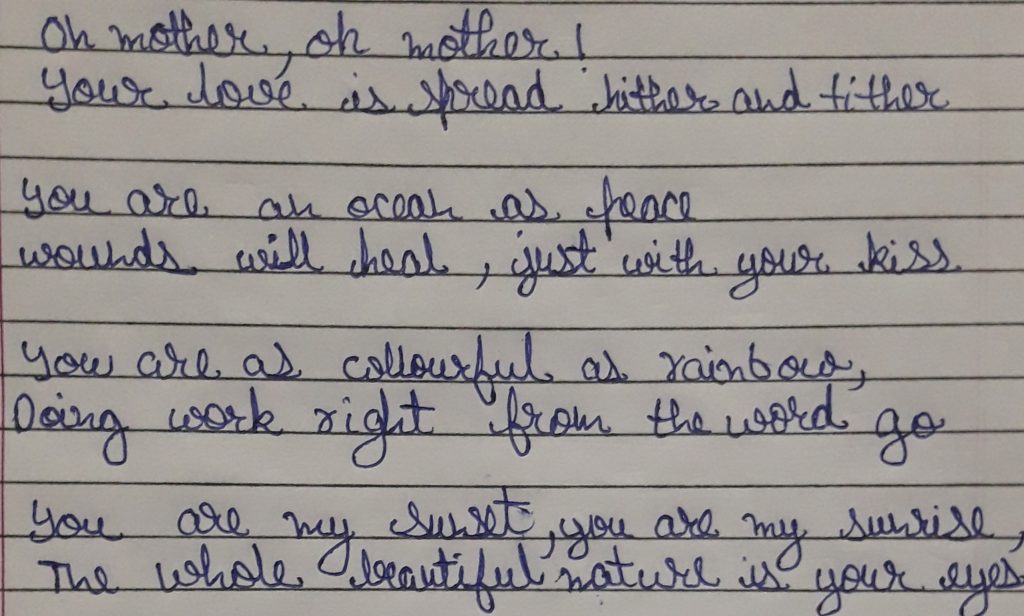 Oh mother, oh mother!
Your love is spread hither and tither
You are an ocean as peace
wounds will heal, just with your kiss
You are as collourful as rainbow,
Doing work right from the word go
You are my sunset, you are my sunrise,
The whole beautiful nature is your eyes